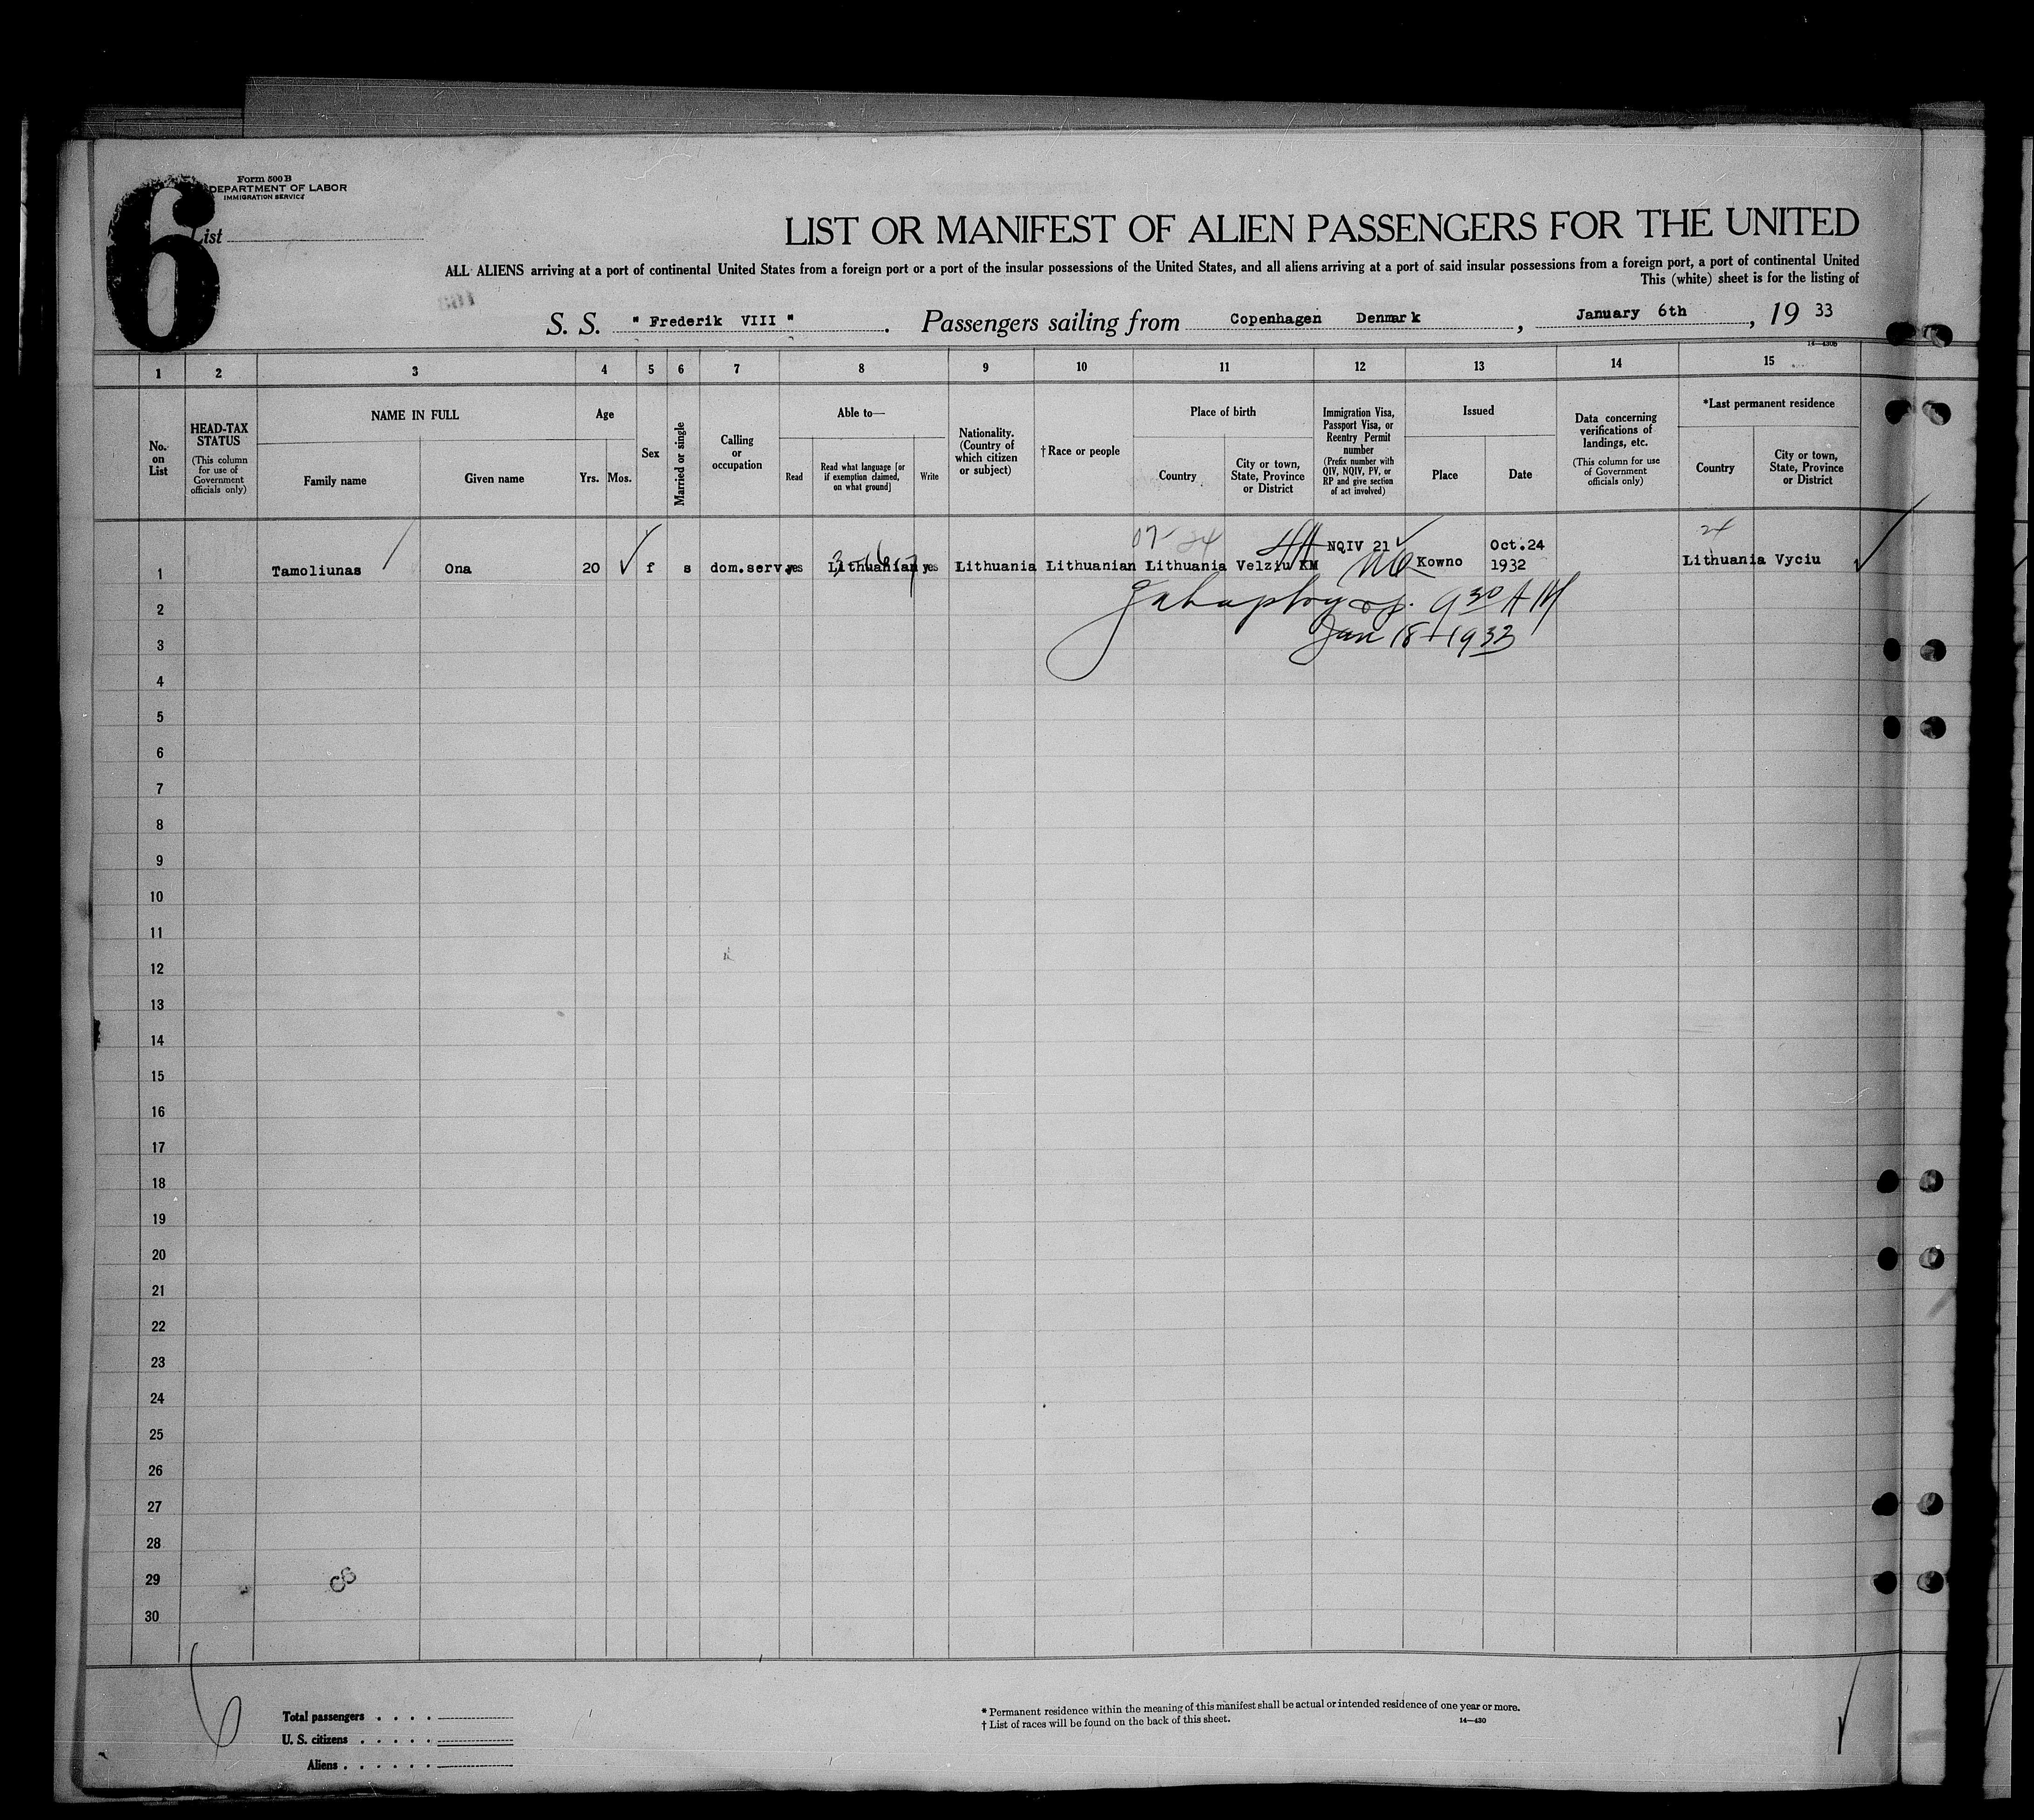 6
Form 500 B
DEPARTMENT OF LABOR
IMMIGRATION SERVICE
List
LIST OR MANIFEST OF ALIEN PASSENGERS FOR THE UNITED
ALL ALIENS arriving at a port of continental United States from a foreign port or a port of the insular possessions of the United States, and all aliens arriving at a port of said insular possessions from a foreign port, a port of continental United
This (white) sheet is for the listing of
S. S. " Frederik VIII " . Passengers sailing from Copenhagen Denmark , January 6th , 19 33
1 2 3 4 5 6 7 8 9 10 11 12 13 14 15
No. on List
HEAD-TAX STATUS
(This column for use of Government officials only)
NAME IN FULL
Family name
Given name
Age
Yrs.
Mos.
Sex
Married or single
Calling or occupation
Able to—
Read
Read what language [or if exemption claimed, on what ground]
Write
Nationality. (Country of which citizen or subject)
†Race or people
Place of birth
Country
City or town, State, Province or District
Immigration Visa, Passport Visa, or Reentry Permit number
(Prefix number with QIV, NQIV, PV, or RP and give section of act involved)
Issued
Place
Date
Data concerning verifications of landings, etc.
(This column for use of Government officials only)
*Last permanent residence
Country
City or town, State, Province or District
1 Tamoliunas Ona 20 f s dom.serv. yes Lithuanian yes Lithuania Lithuanian Lithuania Velziu KM NQIV 21 Kowno Oct.24 1932 Lithuania Vyciu
9 30 A M
2
Jan 18 - 1933
3
4
5
6
7
8
9
10
11
12
13
14
15
16
17
18
19
20
21
22
23
24
25
26
27
28
29
30
6
Total passengers . . . .
U. S. citizens . . . . .
Aliens . . . . . .
* Permanent residence within the meaning of this manifest shall be actual or intended residence of one year or more.
† List of races will be found on the back of this sheet.
14—430